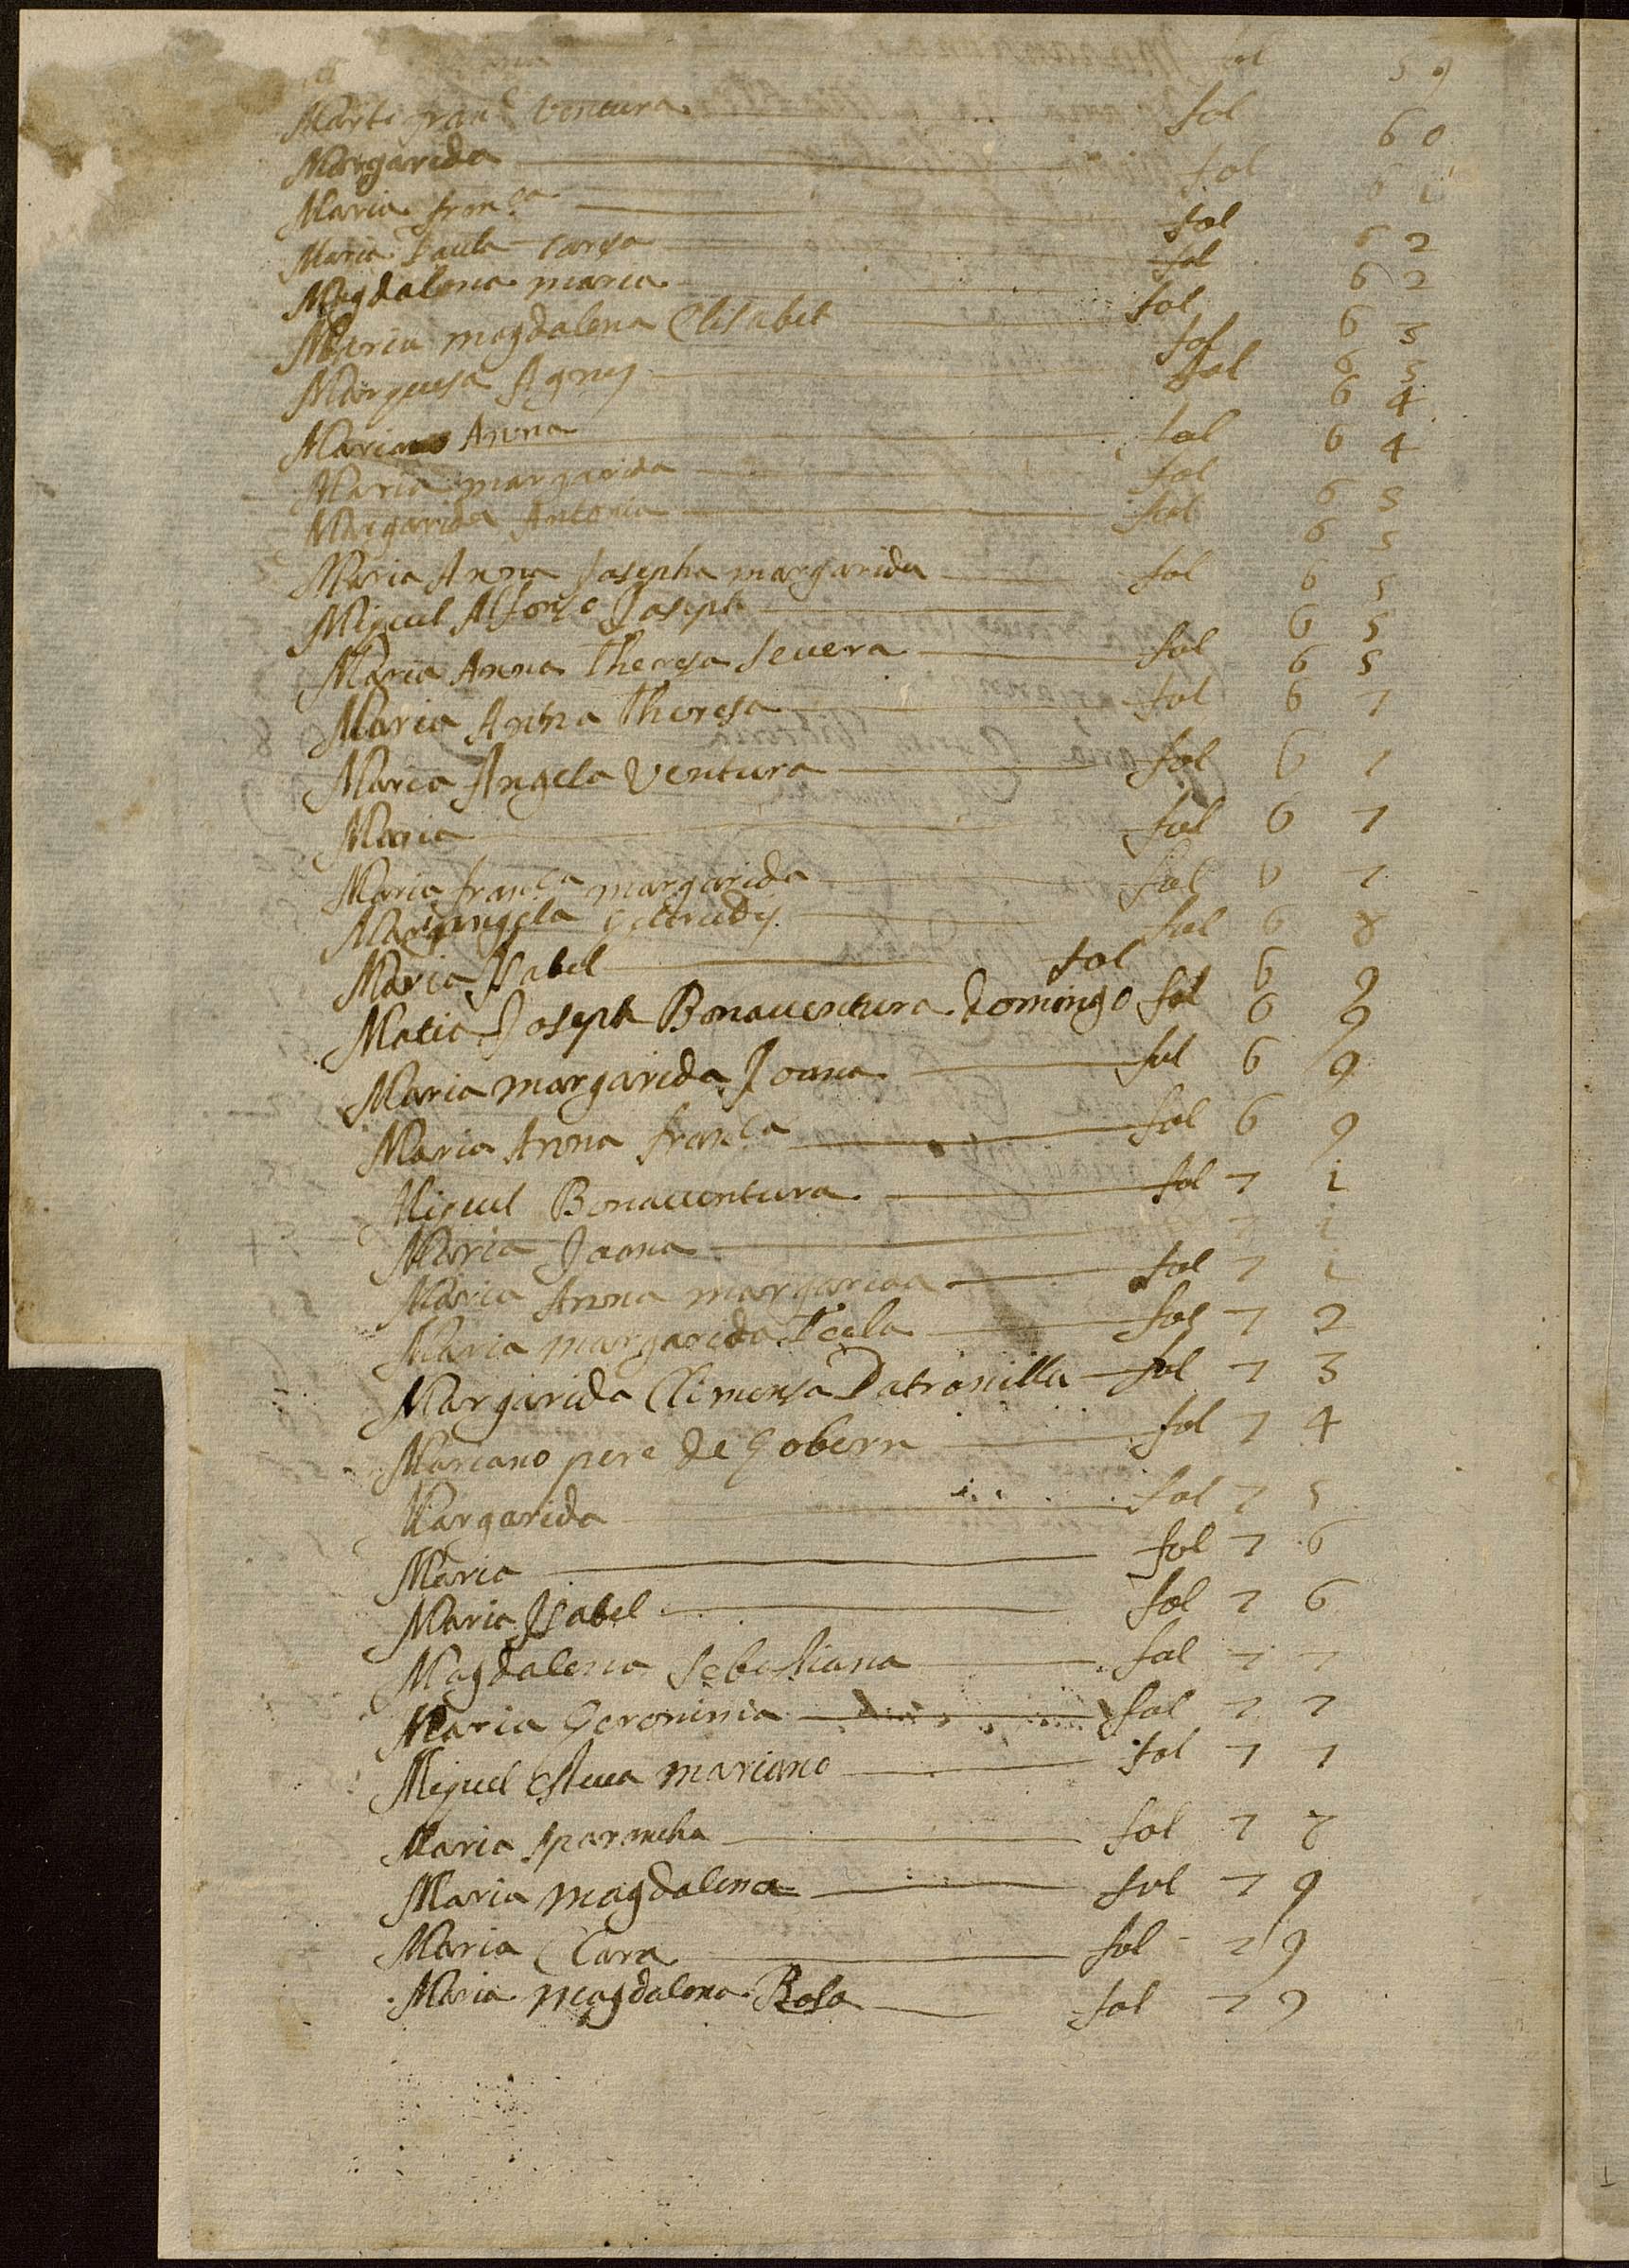 fol 59
Marti franc Ventura fol 60
Margarida fol 61
Maria fran.ca fol 62
Maria Paula fol 62
Magdalena maria fol 63
Maria magdalena Elisabet fol 63
Marquesa Agnes fol 64
Mariana Anna fol 64
Maria margarida fol 65
Margarida Antonia fol 65
Maria Anna Josepha margarida fol 65
Miguel Alfonso Joseph 65
Maria Anna Theresa Severa fol 65
Maria Anna Theresa fol 67
Maria Angela Ventura fol 67
Maria fol 67
Maria fran.ca margarida fol 67
Mariangela Geltrudis fol 68
Maria Isabel fol 69
Matia Joseph Bonaventura Domingo fol 69
Maria margarida Joana fol 69
Maria Anna fran.ca fol 69
Miguel Bonaventura fol 71
Maria Joana 71
Maria Anna margarida fol 71
Maria margarida Tecla fol 72
Margarida Clemensa Patronilla fol 73
Mariano pere de Gobern fol 74
Margarida fol 75
Maria fol 76
Maria Isabel fol 76
Magdalena Sebastiana fol 77
Maria Geronima fol 77
Miguel Esteva mariano fol 77
Maria Sparancha fol 78
Maria magdalena fol 79
Maria Clara fol 79
Maria magdalena Rosa fol 79